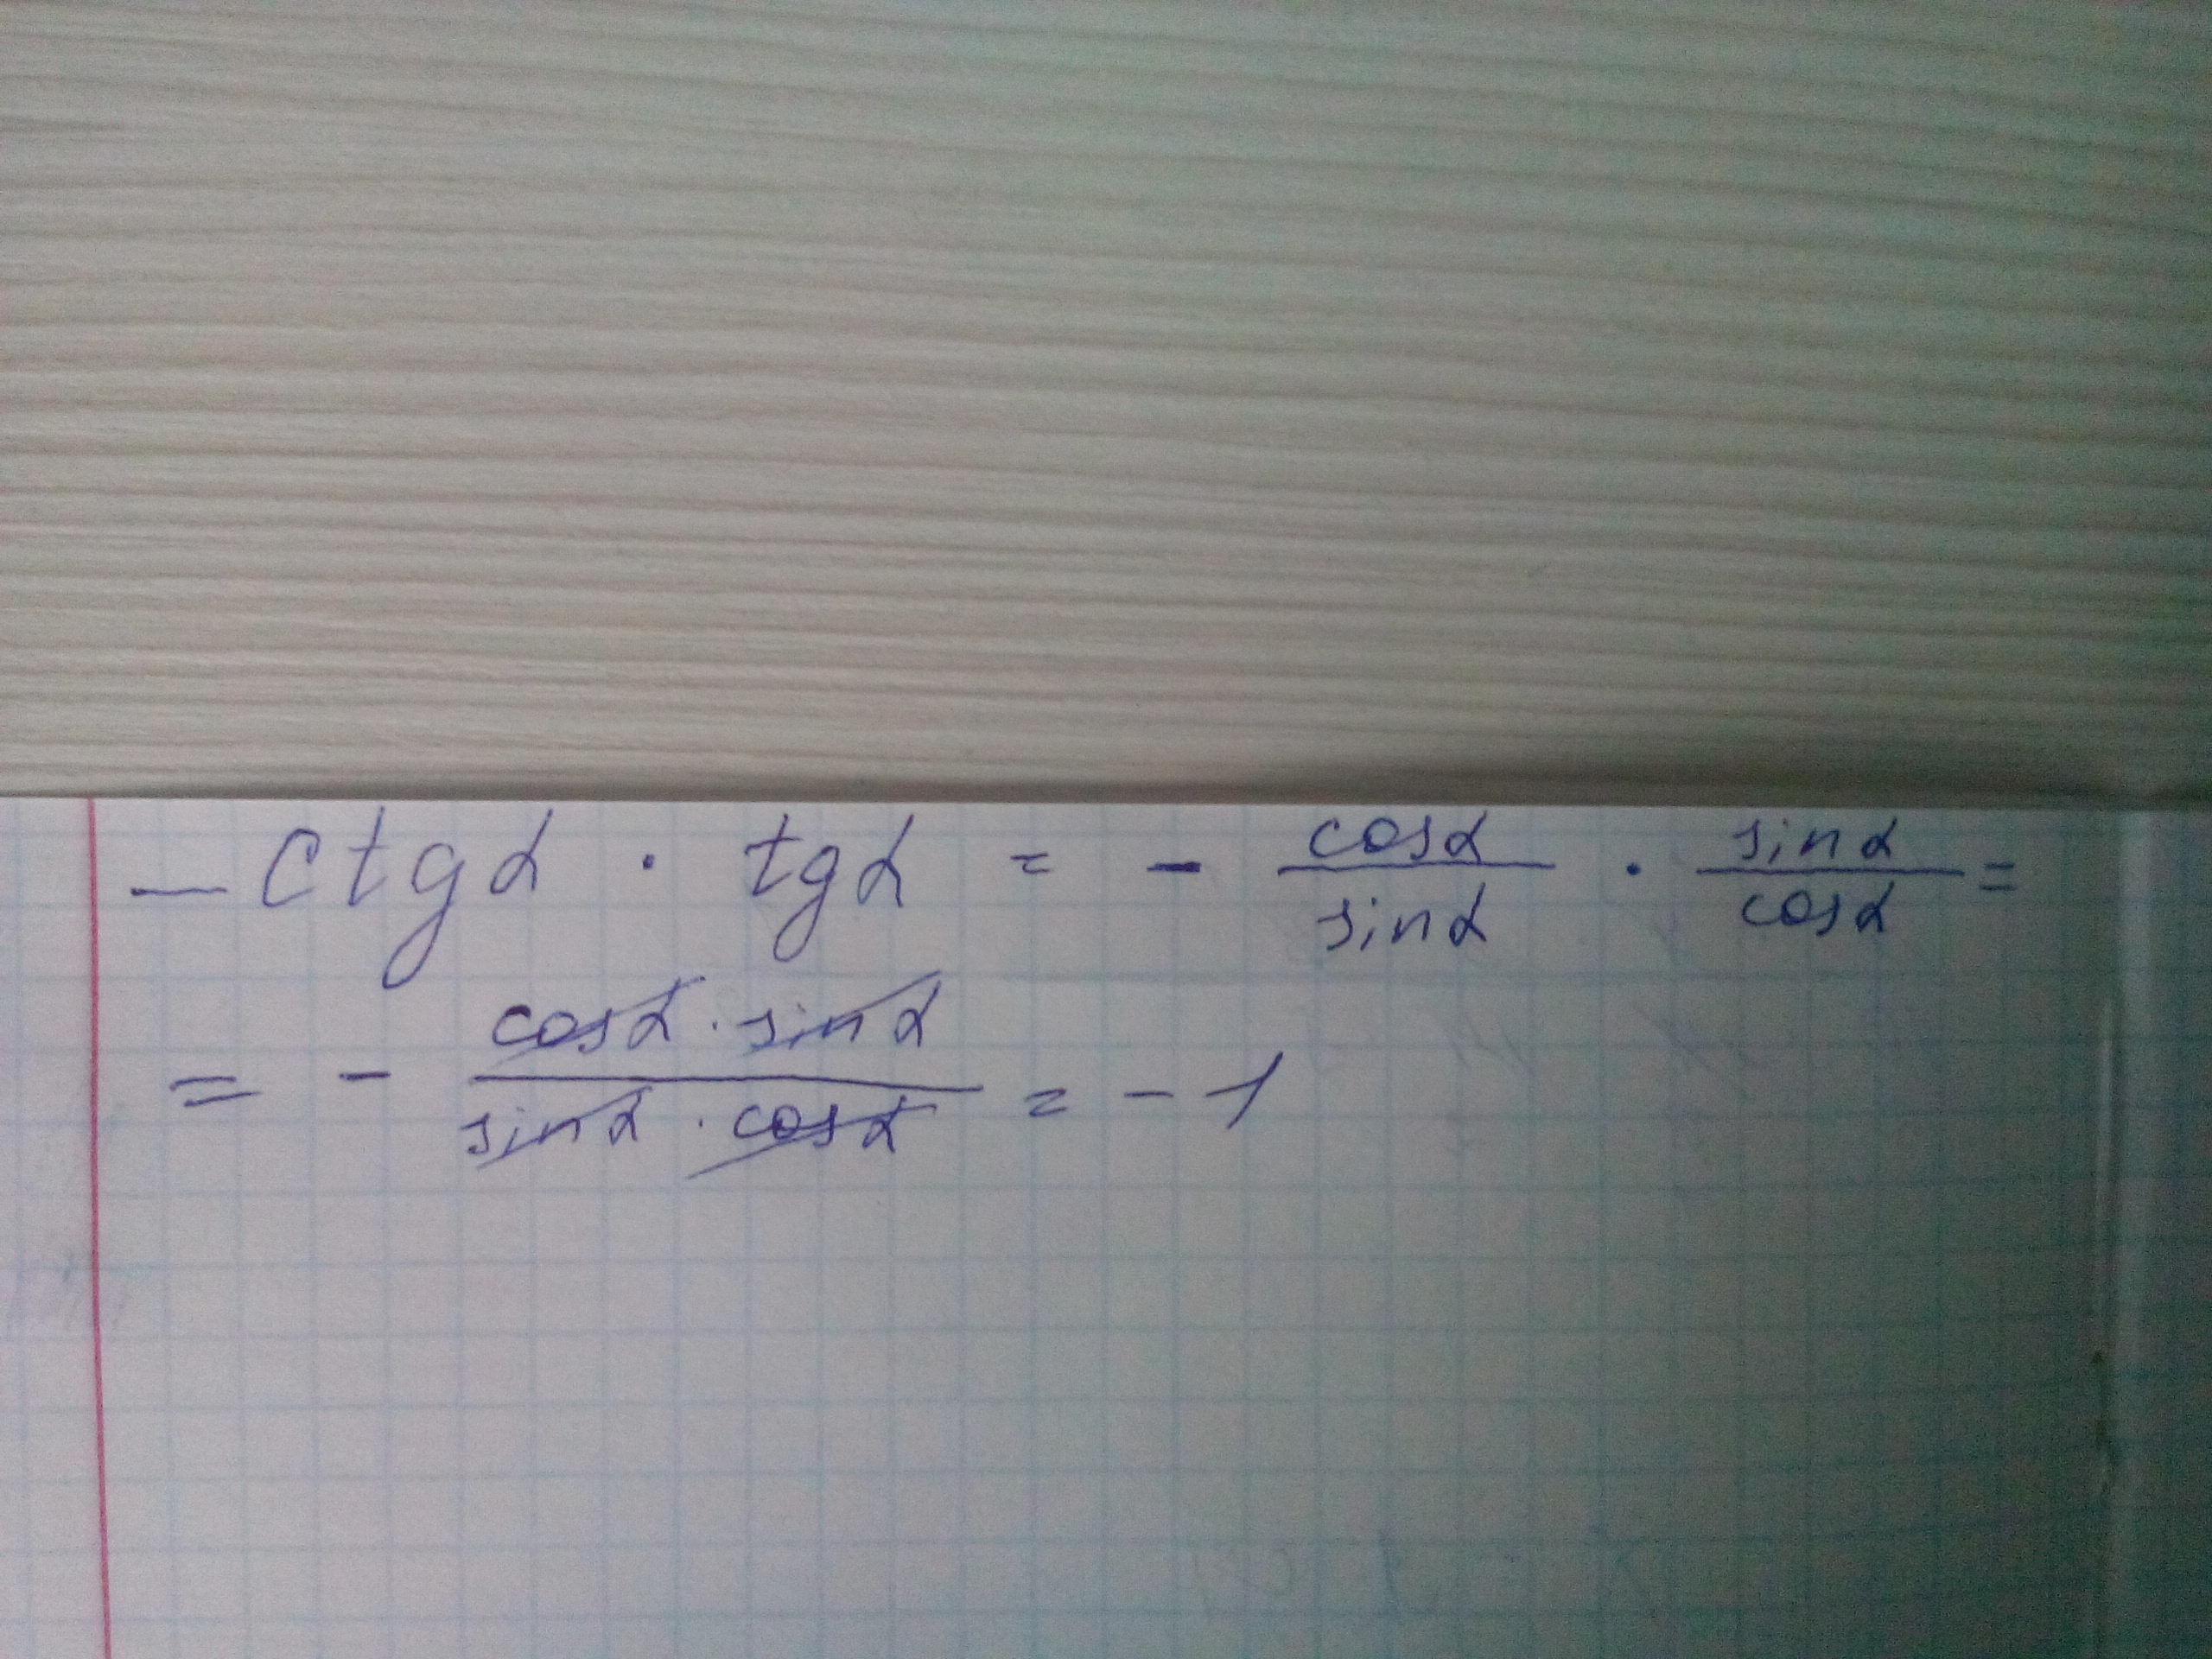 - ctgα · tgα = - cosα/sinα · sinα/cosα =
= - cosα · sinα/sinα · cosα = -1